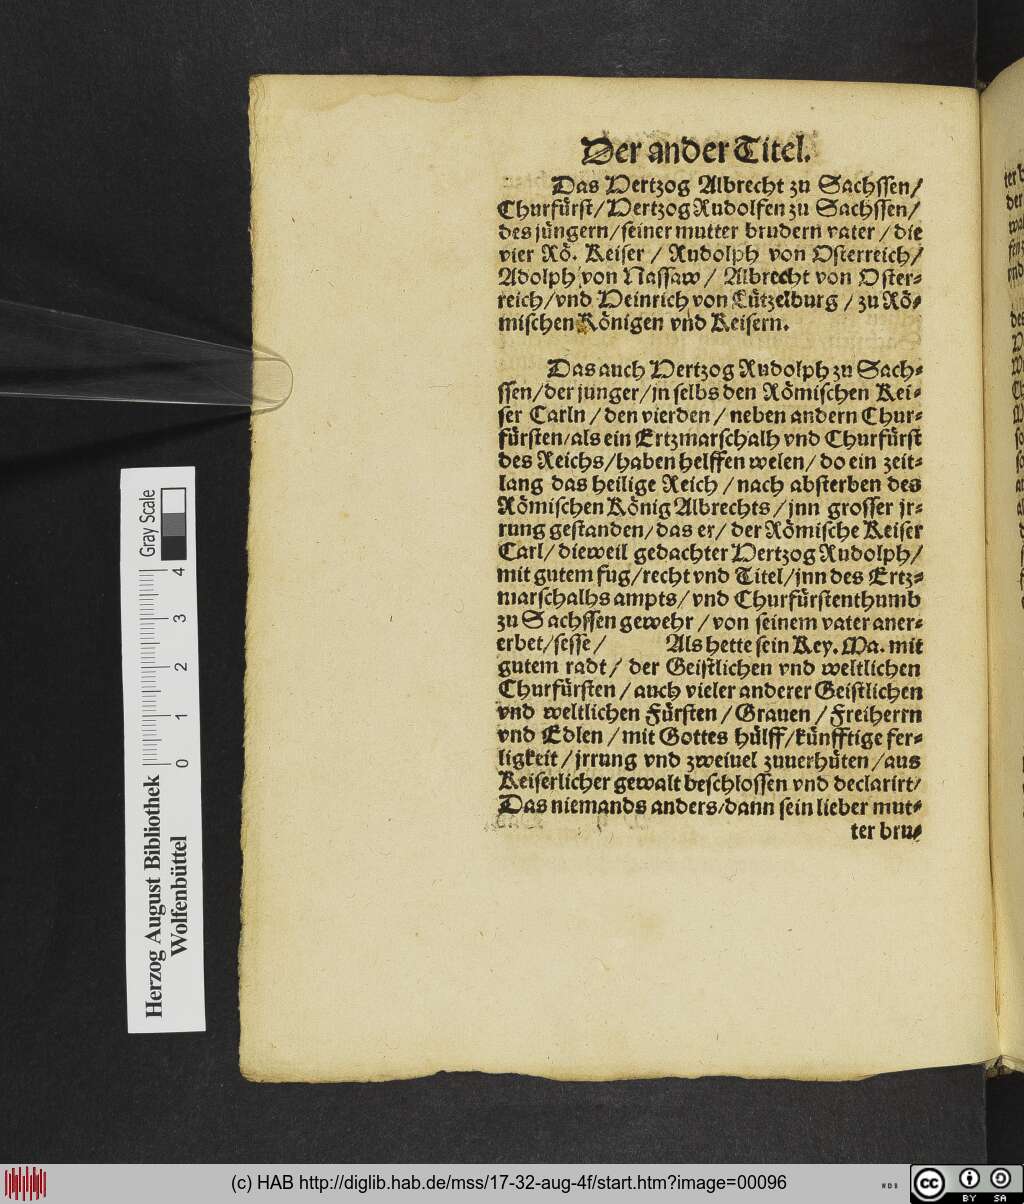 Der ander Titel.
Das Hertzog Albrecht zu Sachssen/
Churfürst/Hertzog Rudolfen zu Sachssen/
des jüngern/seiner mutter brudern vater/die
vier Rö. Keiser/Rudolph von Osterreich/
Adolph von Nassaw/Albrecht von Oster⸗
reich/vnd Heinrich von Lützelburg/zu Rö⸗
mischen Königen vnd Keisern.
Das auch Hertzog Rudolph zu Sach⸗
ssen/der junger/jn selbs den Römischen Kei⸗
ser Carln/den vierden/neben andern Chur⸗
fürsten/als ein Ertzmarschalh vnd Churfürst
des Reichs/haben helffen welen/do ein zeit⸗
lang das heilige Reich/nach absterben des
Römischen König Albrechts/jnn grosser jr⸗
rung gestanden/das er/der Römische Keiser
Carl/dieweil gedachter Hertzog Rudolph/
mit gutem fug/recht vnd Titel/jnn des Ertz⸗
marschalhs ampts/vnd Churfürstenthumb
zu Sachssen gewehr/von seinem vater aner⸗
erbet/sesse/ Als hette sein Key. Ma. mit
gutem radt/der Geistlichen vnd weltlichen
Churfürsten/auch vieler anderer Geistlichen
vnd weltlichen Fürsten/Grauen/Freiherrn
vnd Edlen/mit Gottes hülff/künfftige fer⸗
ligkeit/jrrung vnd zweiuel zuuerhüten/aus
Keiserlicher gewalt beschlossen vnd declarirt/
Das niemands anders/dann sein lieber mut⸗
ter bru⸗
Herzog August Bibliothek
Wolfenbüttel
0 1 2 3 4
Gray Scale
(c) HAB http://diglib.hab.de/mss/17-32-aug-4f/start.htm?image=00096
cc BY SA